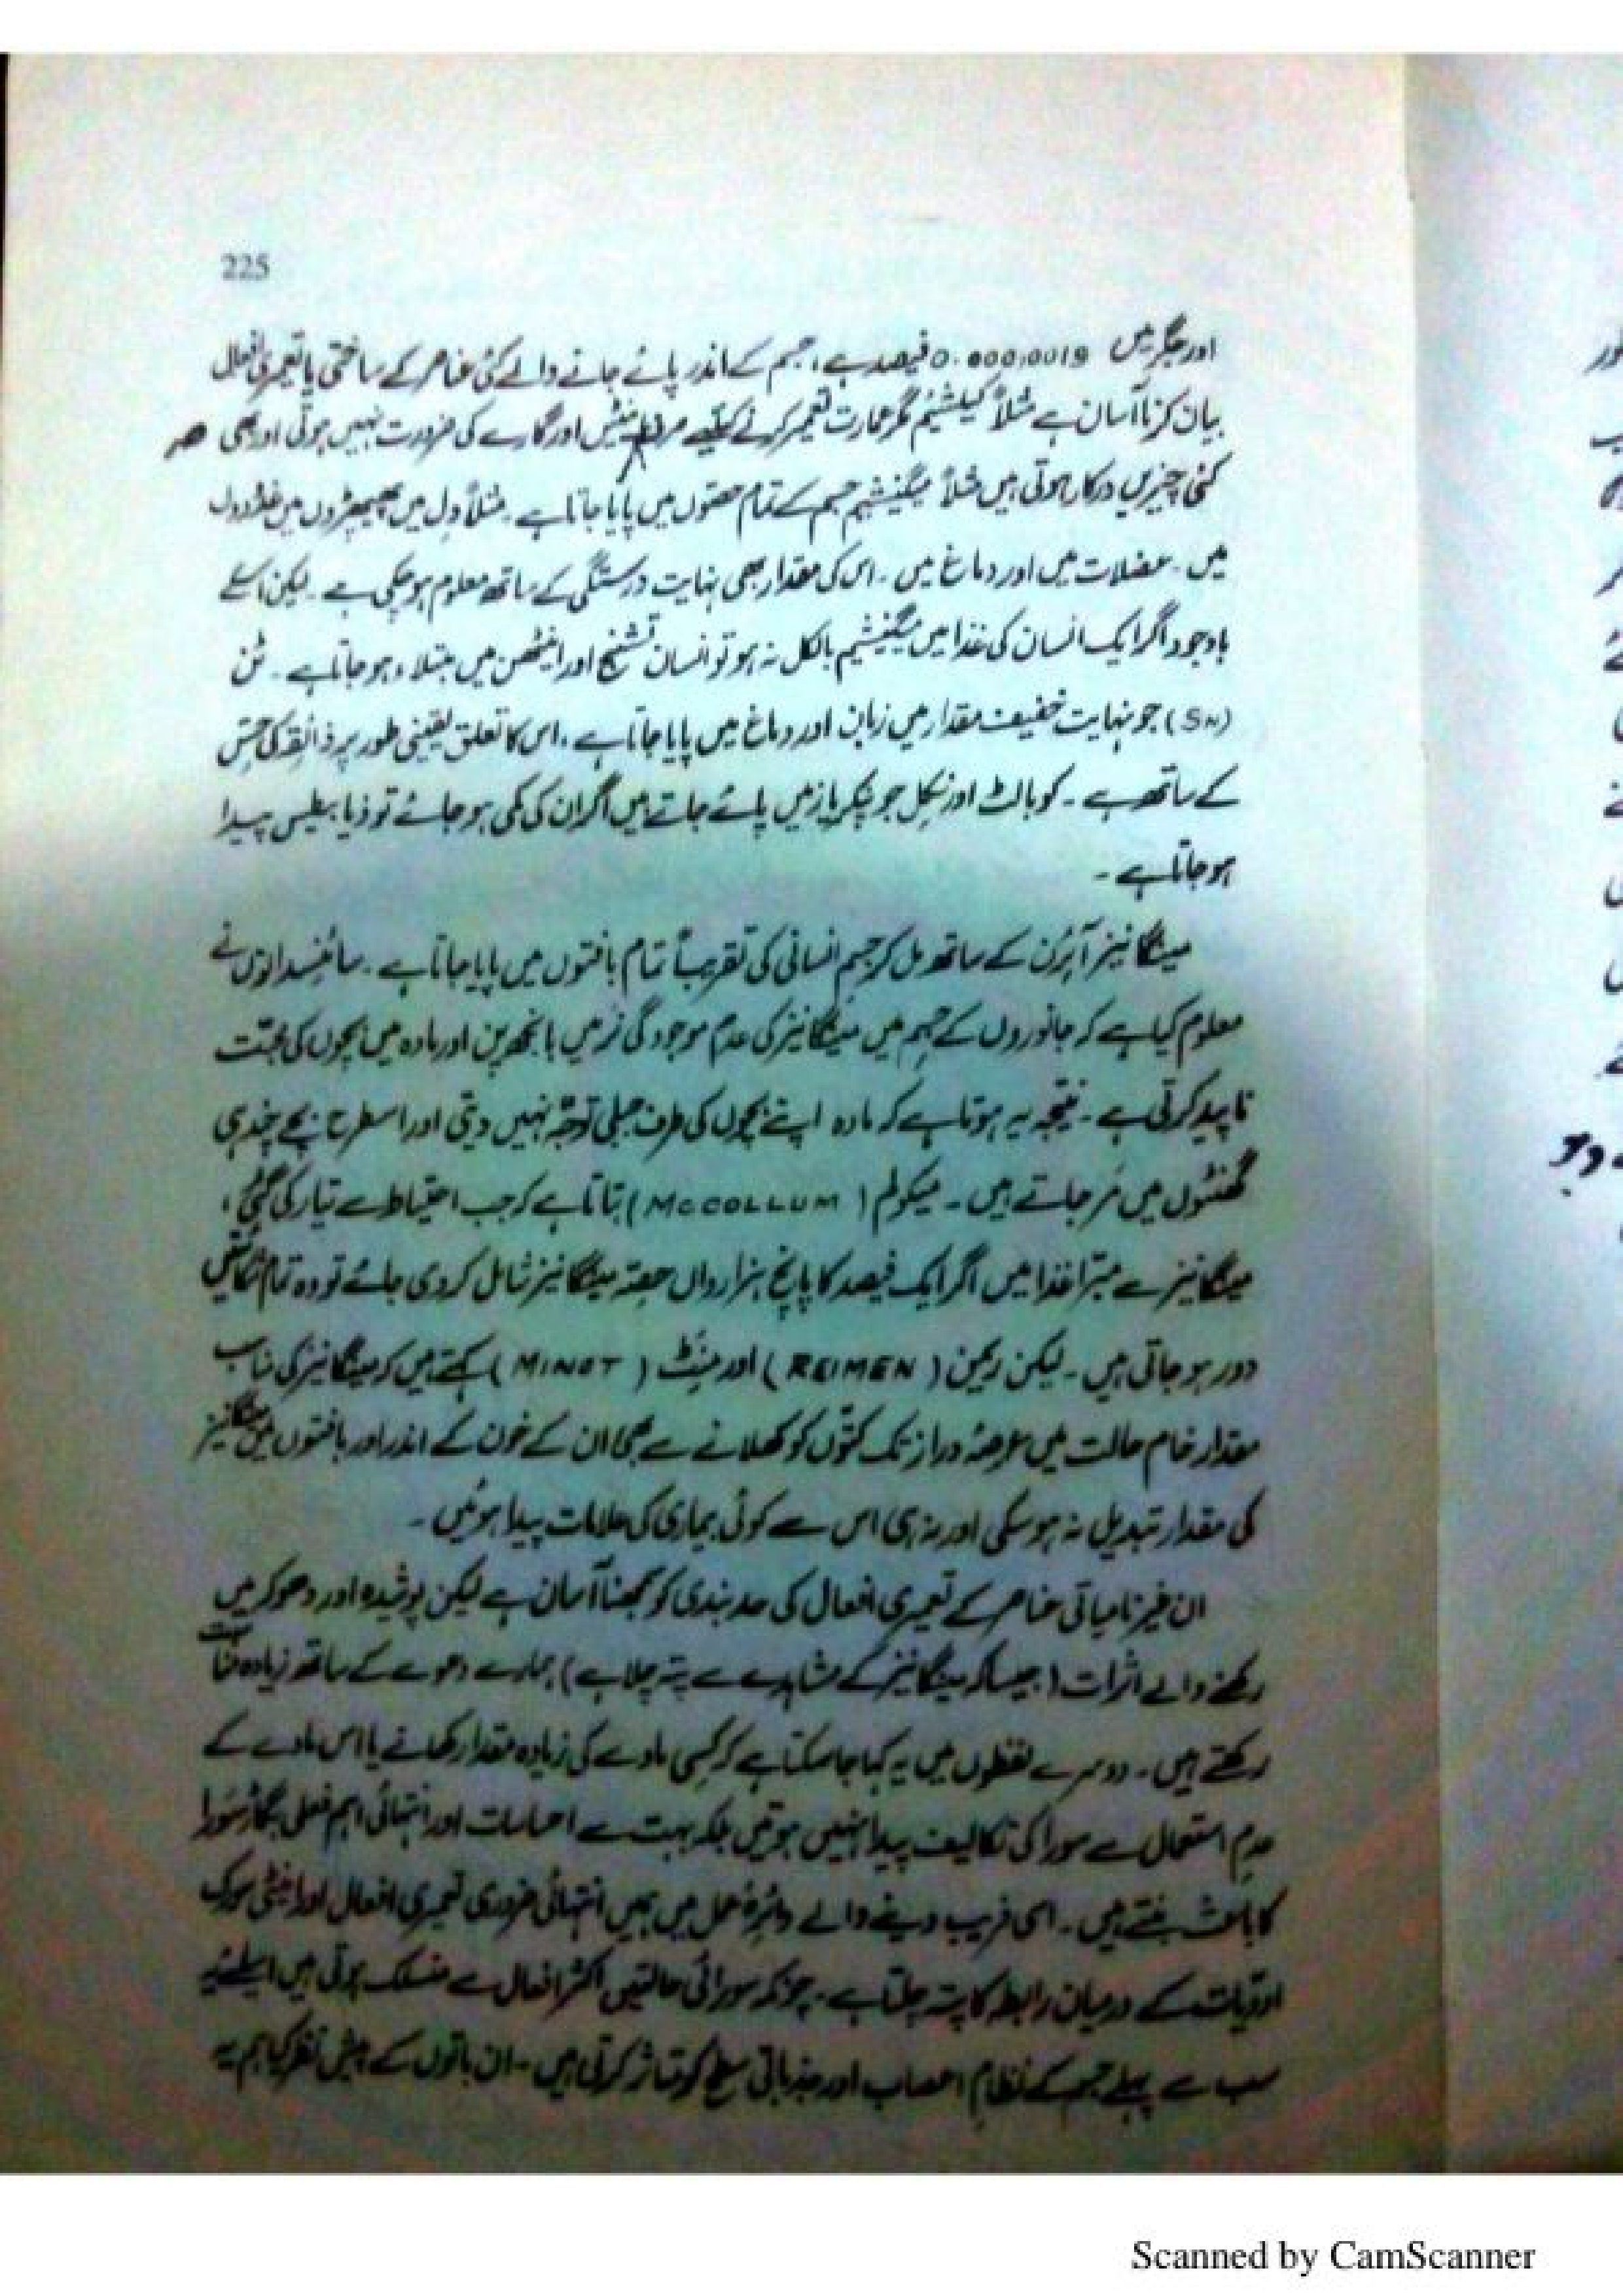 225
اور جگر میں 0.000,0019 فیصد ہے، جسم کے اندر پائے جانے والے کئی عناصر کے ساختی یا تعمیری افعال
بیان کرنا آسان ہے مثلاً کیلشیم مگر عمارت تعمیر کرنے کیلئے صرف اینٹیں اور گارے کی ضرورت نہیں ہوتی اور بھی
کئی چیزیں درکار ہوتی ہیں مثلاً میگنیشیم جسم کے تمام حصوں میں پایا جاتا ہے۔ مثلاً دل میں پھیپھڑوں میں غدودوں
میں۔ عضلات میں اور دماغ میں۔ اس کی مقدار بھی نہایت درستگی کے ساتھ معلوم ہو چکی ہے۔ لیکن اسکے
باوجود اگر ایک انسان کی غذا میں میگنیشیم بالکل نہ ہو تو انسان تشنج اور اینٹھن میں مبتلاء ہو جاتا ہے۔ ٹن
(SN) جو نہایت خفیف مقدار میں زبان اور دماغ میں پایا جاتا ہے، اس کا تعلق یقینی طور پر ذائقہ کی حِس
کے ساتھ ہے۔ کوبالٹ اور نکل جو پنکریاز میں پائے جاتے ہیں اگر ان کی کمی ہو جائے تو ذیابیطیس پیدا
ہو جاتا ہے۔
مینگانیز آئرن کے ساتھ مل کر جسم انسانی کی تقریباً تمام بافتوں میں پایا جاتا ہے۔ سائنسدانوں نے
معلوم کیا ہے کہ جانوروں کے جسم میں مینگانیز کی عدم موجودگی نر میں بانجھ پن اور مادہ میں بچوں کی محبت
ناپید کرتی ہے۔ نتیجہ یہ ہوتا ہے کہ مادہ اپنے بچوں کی طرف جبلی توجہ نہیں دیتی اور اسطرح بچے چند ہی
گھنٹوں میں مَر جاتے ہیں۔ میکولم (McCOLLUM) بتاتا ہے کہ جب احتیاط سے تیار کی گئی،
مینگانیز سے مبّرا غذا میں اگر ایک فیصد کا پانچ ہزارواں حصّہ مینگانیز شامل کر دی جائے تو وہ تمام نقائص
دور ہو جاتی ہیں۔ لیکن ریمن (REIMEN) اور مِنٹ (MINOT) کہتے ہیں کہ مینگانیز کی مناسب
مقدار خام حالت میں عرصۂ دراز تک کتّوں کو کھلانے سے بھی ان کے خون کے اندر اور بافتوں میں مینگانیز
کی مقدار تبدیل نہ ہو سکی اور نہ ہی اس سے کوئی بیماری کی علامات پیدا ہوئیں۔
ان غیر نامیاتی عناصر کے تعمیری افعال کی حد بندی کو سمجھنا آسان ہے لیکن پوشیدہ اور دھوکہ میں
رکھنے والے اثرات (جیسا کہ مینگانیز کے مشاہدے سے پتہ چلا ہے) ہمارے دعوے کے ساتھ زیادہ مناسبت
رکھتے ہیں۔ دوسرے لفظوں میں یہ کہا جا سکتا ہے کہ کسی مادے کی زیادہ مقدار کھانے یا اس مادے کے
عدم استعمال سے سورا کی تکالیف پیدا نہیں ہوتیں بلکہ بہت سے احساسات اور انتہائی اہم فعلی بگاڑ سَورا
کا باعث بنتے ہیں۔ اسی فریب دینے والے دائرۂ عمل میں ہمیں انتہائی ضروری تعمیری افعال اور اینٹی سورک
ادویات کے درمیان رابطہ کا پتہ چلتا ہے۔ چونکہ سورائی حالتیں اکثر افعال سے منسلک ہوتی ہیں اسلئے یہ
سب سے پہلے جسم کے نظامِ اعصاب اور جذباتی سطح کو متاثر کرتی ہیں۔ ان باتوں کے پیش نظر کیا ہم یہ
Scanned by CamScanner